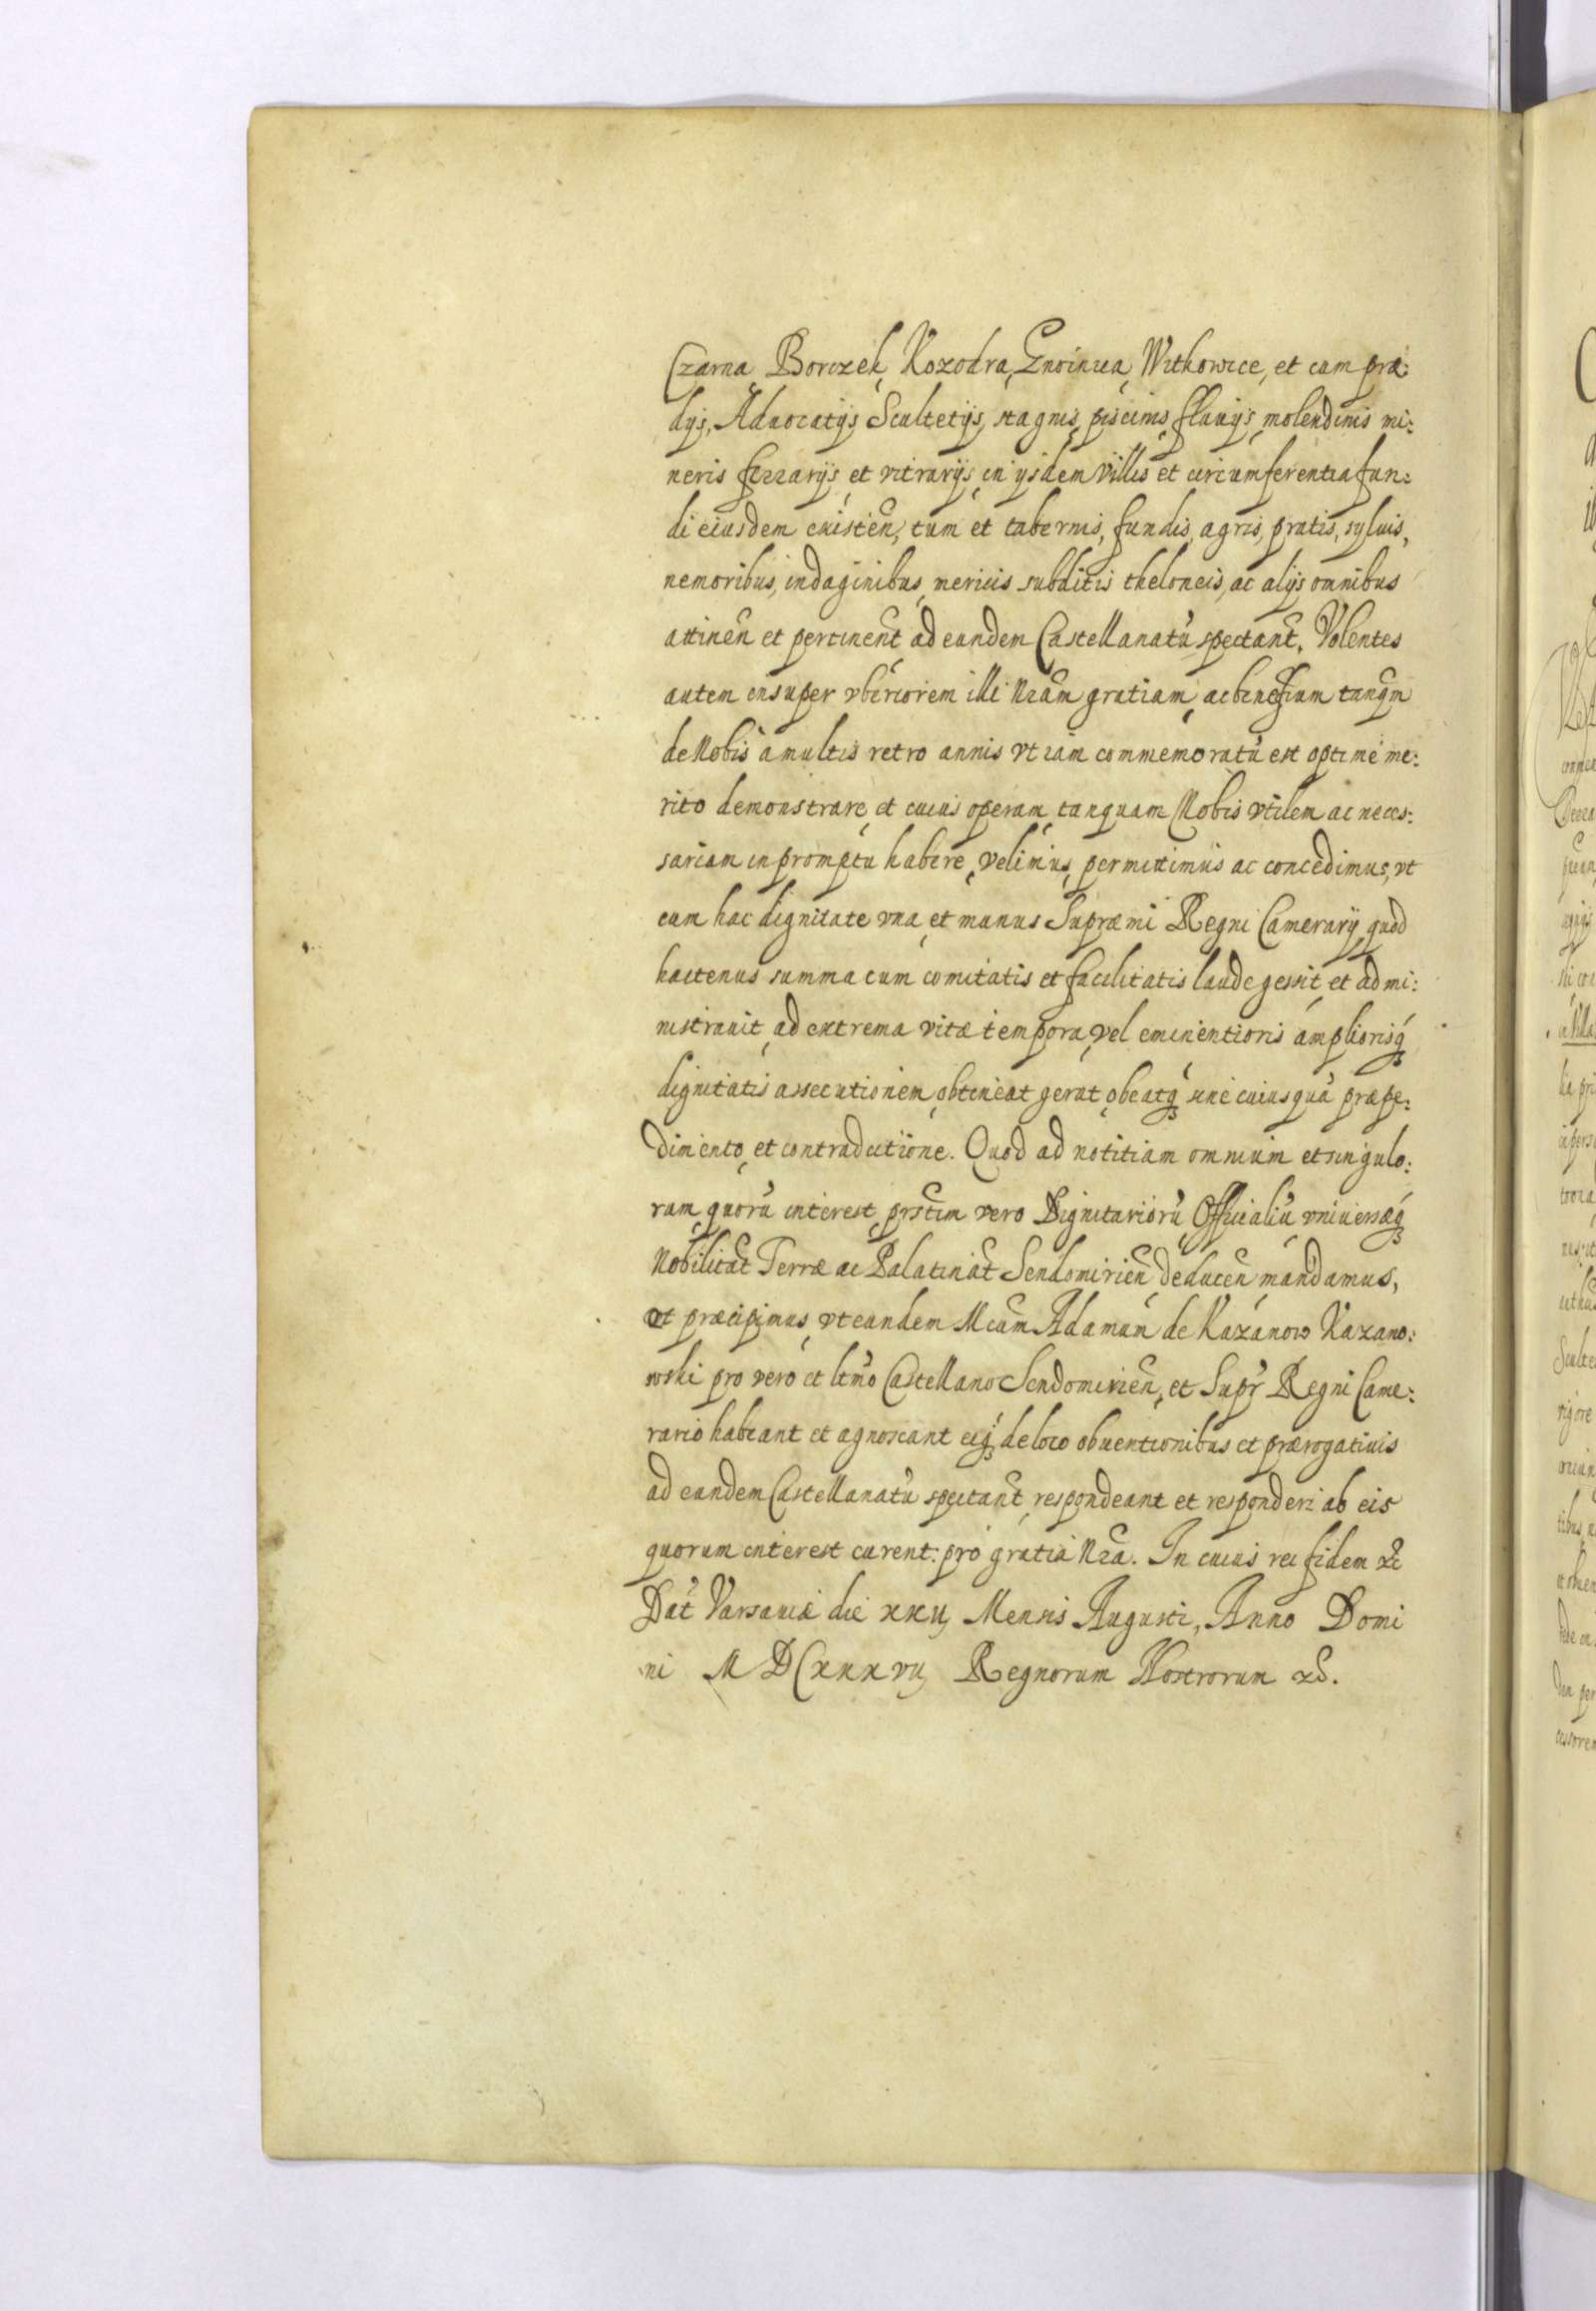 Czarna, Borczek, Kozodra, Znoinica, Witkowice, et cum præ:
dys, Aduocatys, Scultetys, stagnis, piscinis, fluuys, molendinis mi:
neris ferrarys, et vitrarys, in ysdem villis et circumferentia fun:
di eiusdem existeñ, tum et tabernis, fundis, agris, pratis, syluis,
nemoribus, indaginibus, mericis subditis theloneis, ac alys omnibus
attineñ et pertineñt ad eundem Castellanatũ spectant̃. Volentes
autem insuper vberiorem illi Nram̃ gratiam, ac beneficium tanqm
de Nobis a multis retro annis vt iam commemoratũ est optime me:
rito demonstrare, et cuius operam, tanquam Nobis vtilem ac neces:
sariam in promptu habere, velimus, permittimus ac concedimus, vt
cum hac dignitate vna, et munus Supræmi Regni Camerary, quod
hactenus summa cum comitatis et facilitatis laude gessit, et admi:
nistrauit, ad extrema vitæ tempora, vel eminentioris ampliorisq
dignitatis assecutionem, obtineat gerat, obeatq sine cuiusquã præpe:
dimento, et contradictione. Quod ad notitiam omnium et singulo:
rum, quorũ interest, prstim vero Dignitariorũ Officialiũ vniuersæq
Nobilitat̃ Terræ ac Palatinat̃ Sendomirieñ deduceñ mandamus,
et præcipimus, vt eundem Mcum̃ Adamum de Kazanow Kazano:
wski pro vero et ltmo Castellano Sendomirieñ, et Supr Regni Came:
rario habeant et agnoscant eiq de loco obuentionibus et prærogatiuis
ad eundem Castellanatũ spectant̃ respondeant et responderi ab eis
quorum interest curent: pro gratia Nra. In cuius rei fidem &c
Dat̃ Varsauiæ die xxij Mensis Augusti, Anno Domi
ni MDCxxxvij Regnorum Nostrorum &c.